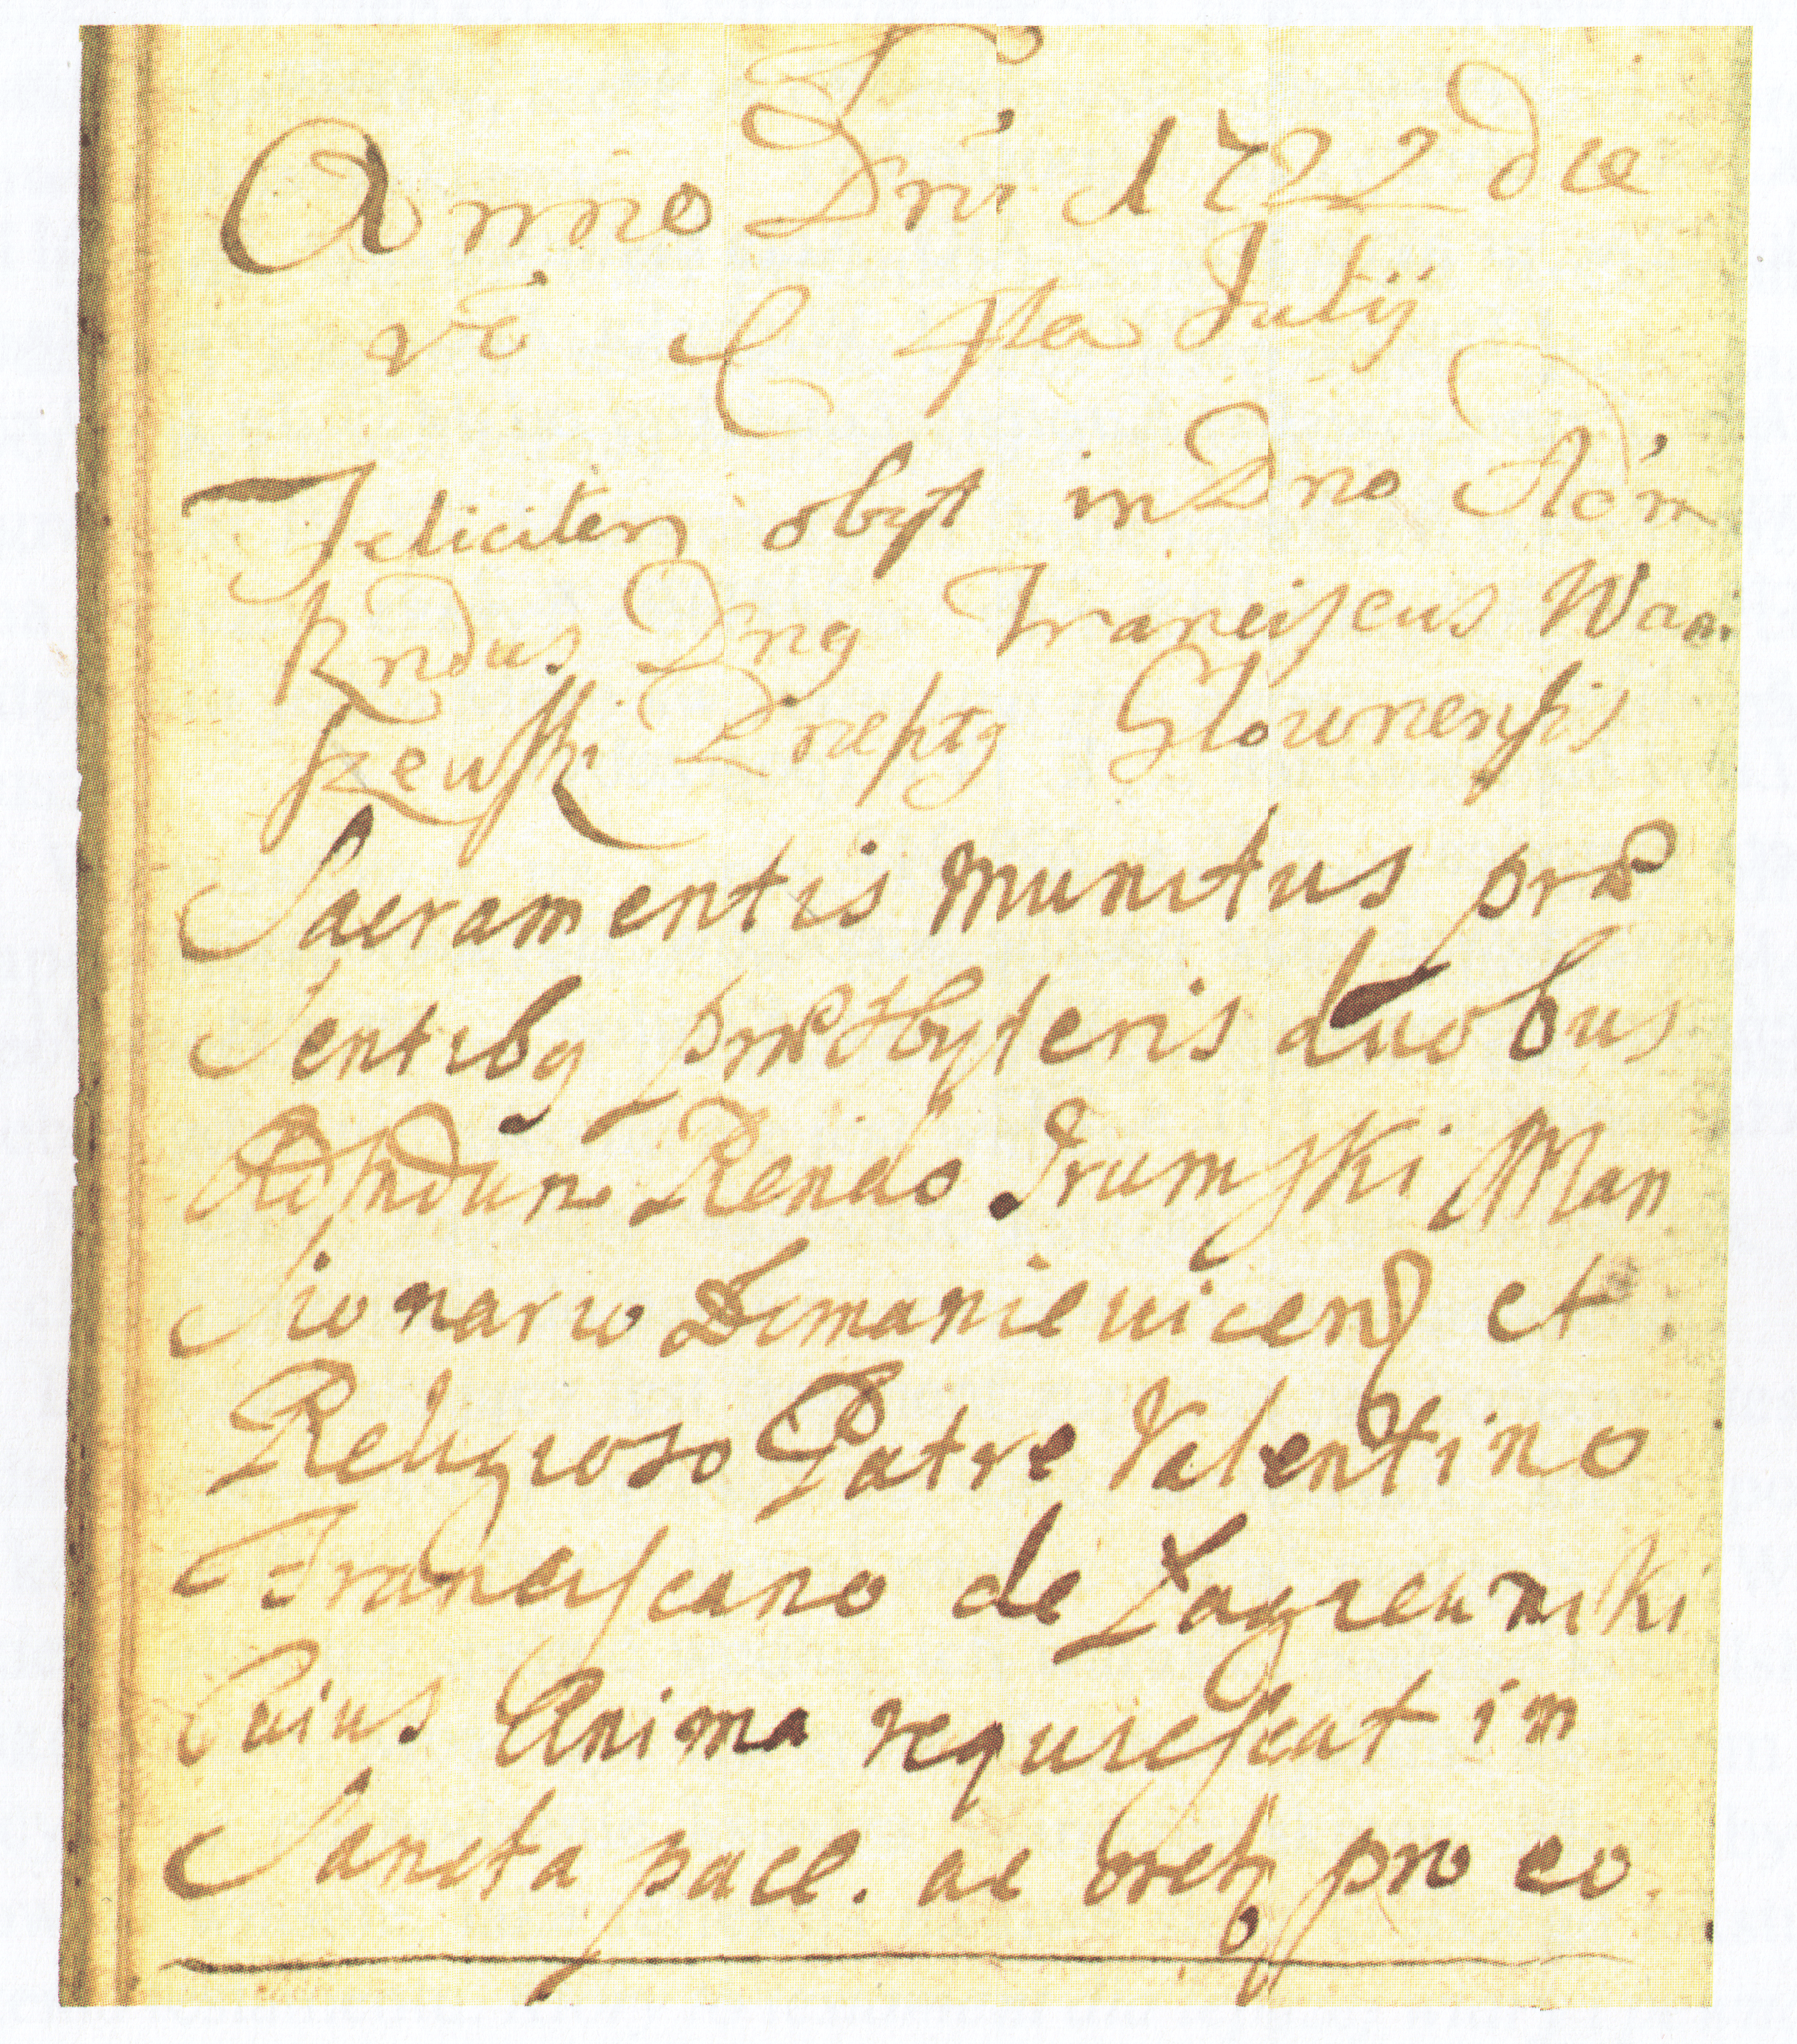 Anno Dni 1722 die
vo sta Julij
Feliciter obyt in Dno Adm
Rndus Dnq Franciscus Wa
szewski Præptq Glownensis
Sacramentis munitus præ
sentibq præsbyteris duobus
Adm Rndo Trumski Man
sionario Domanieuicens et
Religioso Patre Valentino
Franciscano de Łagieuniki
Cuius Anima requiescat in
Sancta pace. ac oretq pro eo.